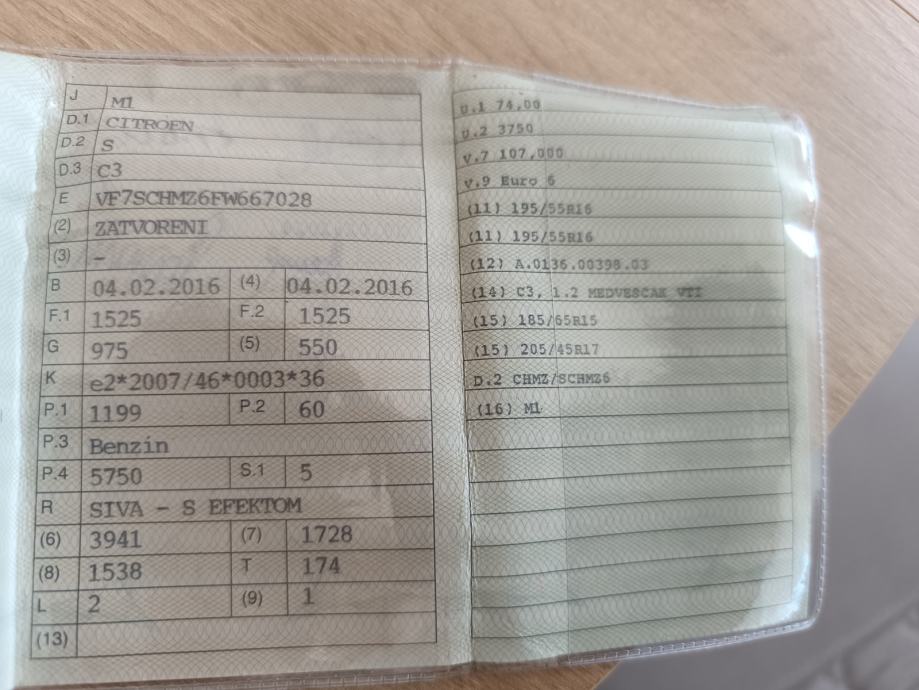 J M1
D.1 CITROEN
D.2 S
D.3 C3
E VF7SCHMZ6FW667028
(2) ZATVORENI
(3) –
B 04.02.2016 (4) 04.02.2016
F.1 1525 F.2 1525
G 975 (5) 550
K e2*2007/46*0003*36
P.1 1199 P.2 60
P.3 Benzin
P.4 5750 S.1 5
R SIVA - S EFEKTOM
(6) 3941 (7) 1728
(8) 1538 T 174
L 2 (9) 1
(13)
U.1 74,00
U.2 3750
V.7 107,000
V.9 Euro 6
(11) 195/55R16
(11) 195/55R16
(12) A.0136.00398.03
(14) C3, 1.2 MEDVESCAK VTI
(15) 185/65R15
(15) 205/45R17
D.2 CHMZ/SCHMZ6
(16) M1